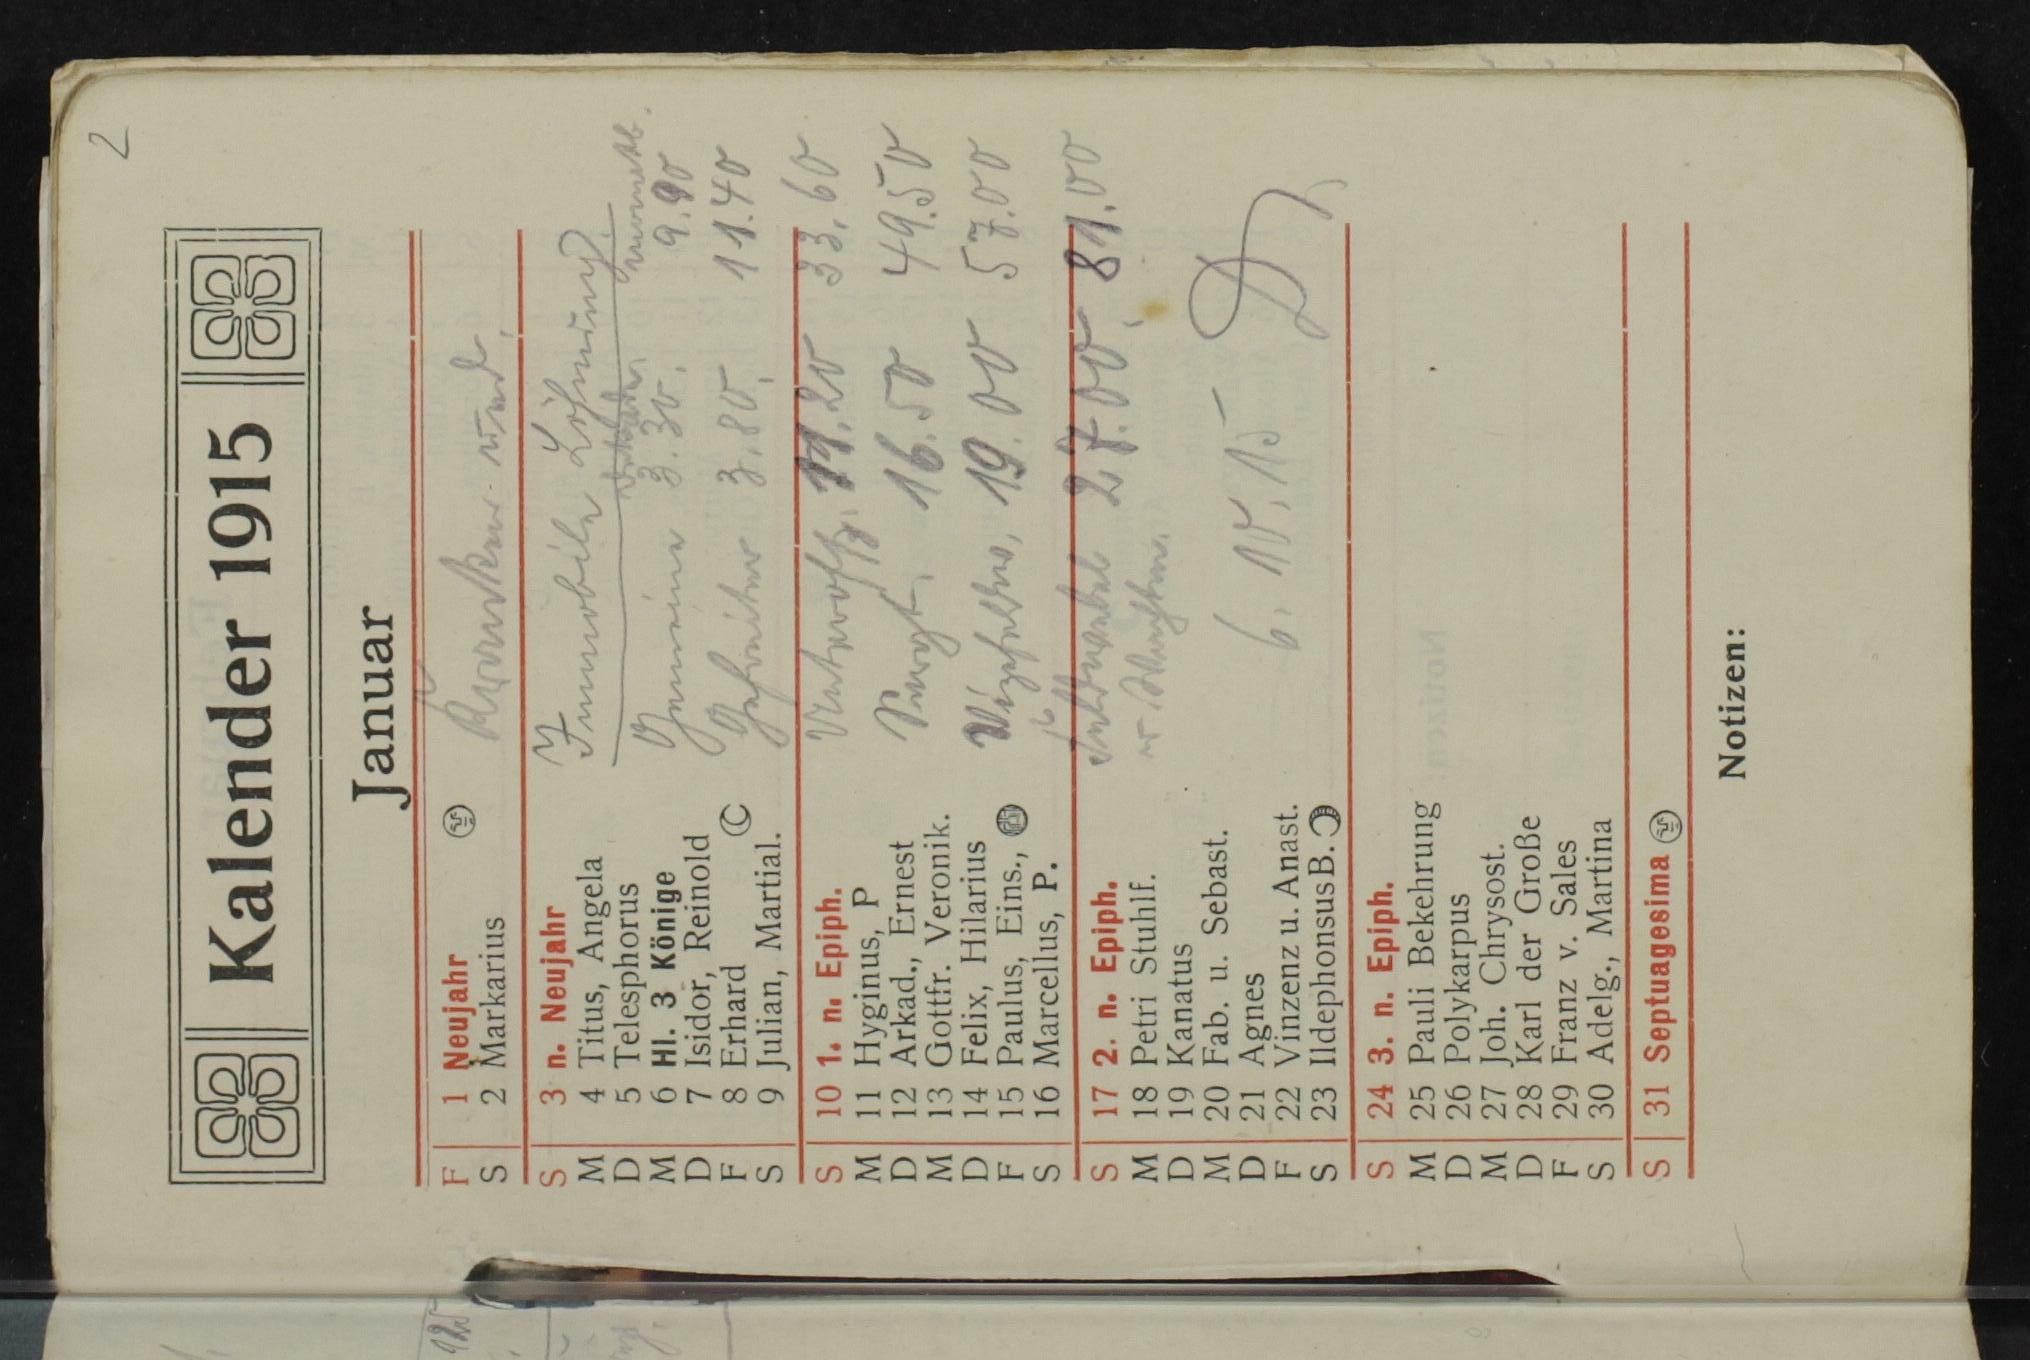 2
Kalender 1915
Januar
F 1 Neujahr
S 2 Markarius
S 3 n. Neujahr
M 4 Titus, Angela
D 5 Telesphorus
M 6 Hl. 3 Könige
D 7 Isidor, Reinold
F 8 Erhard
S 9 Julian, Martial.
S 10 1. n. Epiph.
M 11 Hyginus, P
D 12 Arkad., Ernest
M 13 Gottfr. Veronik.
D 14 Felix, Hilarius
F 15 Paulus, Eins.,
S 16 Marcellus, P.
S 17 2. n. Epiph.
M 18 Petri Stuhlf.
D 19 Kanatus
M 20 Fab. u. Sebast.
D 21 Agnes
F 22 Vinzenz u. Anast.
S 23 Ildephonsus B.
S 24 3. n. Epiph.
M 25 Pauli Bekehrung
D 26 Polykarpus
M 27 Joh. Chrysost.
D 28 Karl der Große
F 29 Franz v. Sales
S 30 Adelg., Martina
S 31 Septuagesima
Notizen:
Immobile Löhnung
Gemeine 3.30. 9.90
Gefreiter 3.80. 11.40
Unteroffz. 11.20 33.60
Sergt. 16.50 49.50
Vizefeldw. 19.00 57.00
Feldwebel 27.00. 81.00
6.10.15